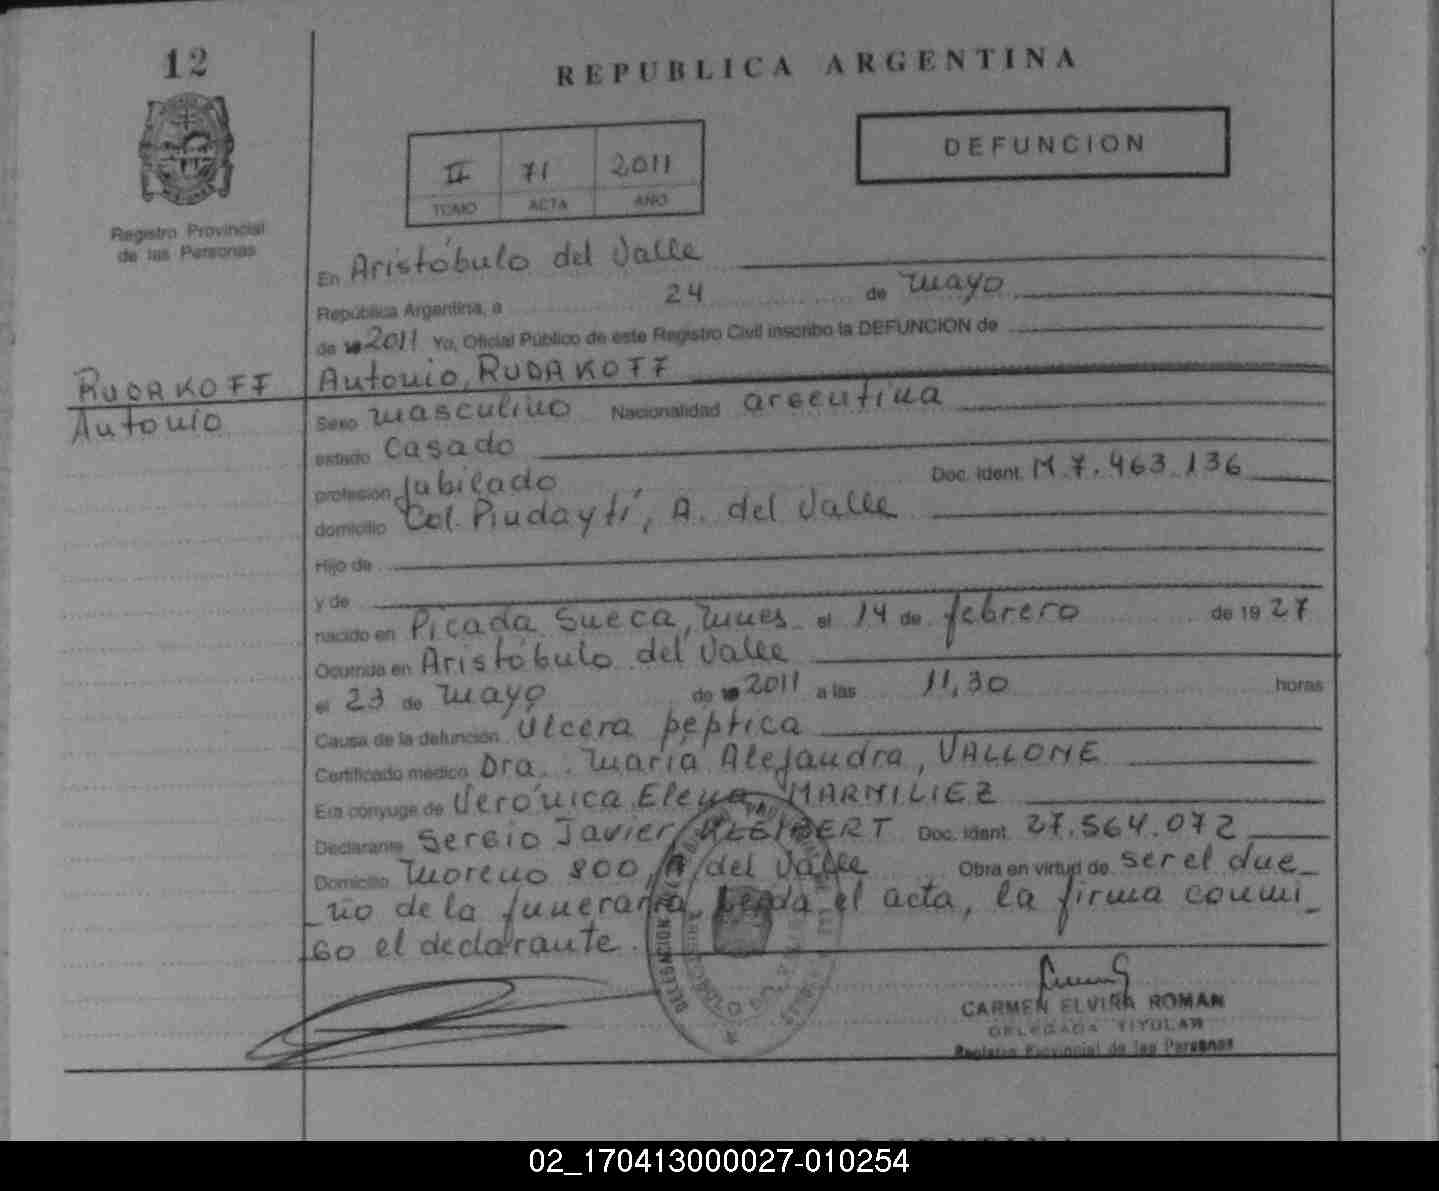 12
REPUBLICA ARGENTINA
DEFUNCION
II 71 2011
TOMO ACTA AÑO
Registro Provincial
de las Personas
En Aristóbulo del Valle
República Argentina, a 24 de mayo
de 2011 Yo, Oficial Público de este Registro Civil inscribo la DEFUNCION de
RUDAKOFF
Antonio
Antonio, RUDAKOFF
Sexo masculino Nacionalidad argentina
estado Casado
profesión Jubilado Doc. Ident. M.7.463.136
domicilio Col. Pindaytí, A. del Valle
Hijo de
y de
nacido en Picada Sueca, Mnes el 14 de febrero de 19 27
Ocurrida en Aristóbulo del Valle
el 23 de mayo de 2011 a las 11,30 horas
Causa de la defunción Ulcera péptica
Certificado médico Dra. María Alejandra, VALLONE
Era cónyuge de Verónica Elena MARMILIEZ
Declarante Sergio Javier KLEIBERT Doc. Ident. 27.564.072
Domicilio Moreno 800, A. del Valle Obra en virtud de ser el due_
_ño de la funeraria, Leída el acta, la firma conmi_
_go el declarante.
CARMEN ELVIRA ROMAN
DELEGADA TITULAR
Registro Provincial de las Personas
02_170413000027-010254